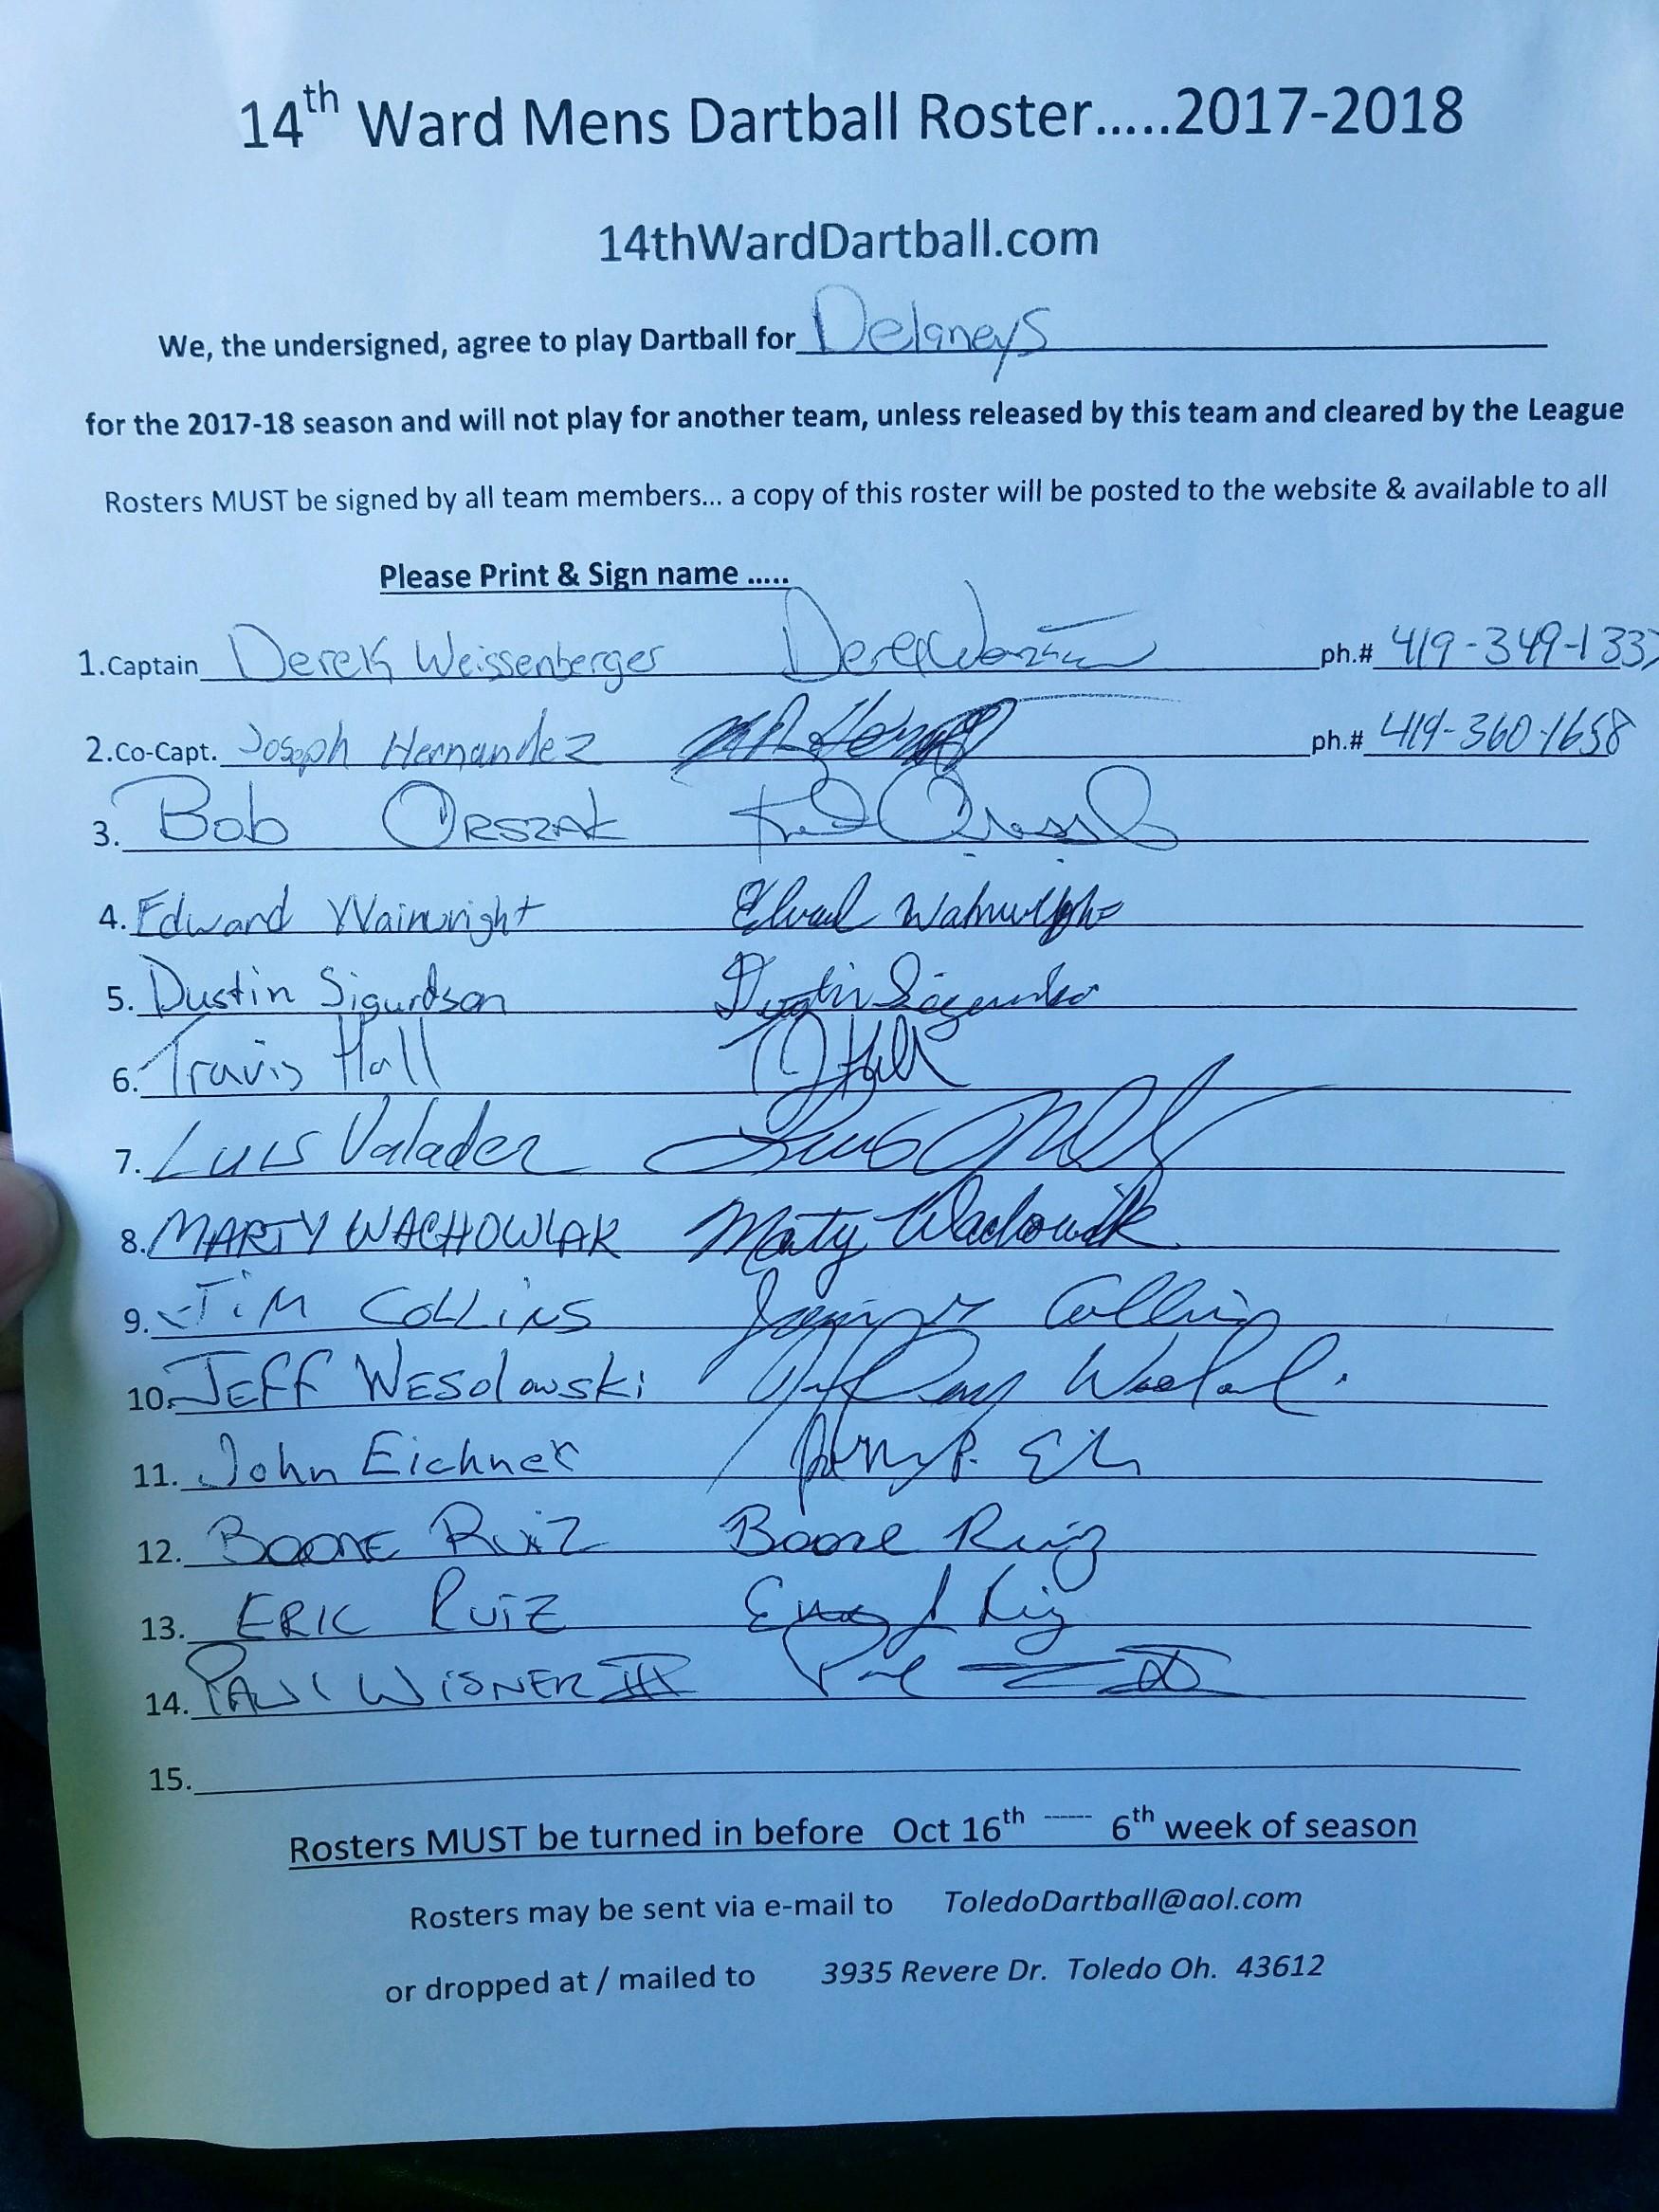 14th Ward Mens Dartball Roster.....2017-2018
14thWardDartball.com
We, the undersigned, agree to play Dartball for Delaneys
for the 2017-18 season and will not play for another team, unless released by this team and cleared by the League
Rosters MUST be signed by all team members... a copy of this roster will be posted to the website & available to all
Please Print & Sign name .....
1.Captain Derek Weissenberger Derek ph.# 419-349-1337
2.Co-Capt. Joseph Hernandez ph.# 419-360-1658
3. Bob Orszak
4. Edward Wainwright Edward Wainwright
5. Dustin Sigurdson Dustin Sigurdson
6. Travis Hall T Hall
7. Luis Valadez Luis
8. MARTY WACHOWIAK Marty Wachowiak
9. TiM COLLiNS Collins
10. JEFF WESOlowski
11. John Eichner
12. BOONE RUiZ Boone Ruiz
13. ERIC RUiZ
14. PAUL WiSNER III Paul III
15.
Rosters MUST be turned in before Oct 16th ------ 6th week of season
Rosters may be sent via e-mail to ToledoDartball@aol.com
or dropped at / mailed to 3935 Revere Dr. Toledo Oh. 43612